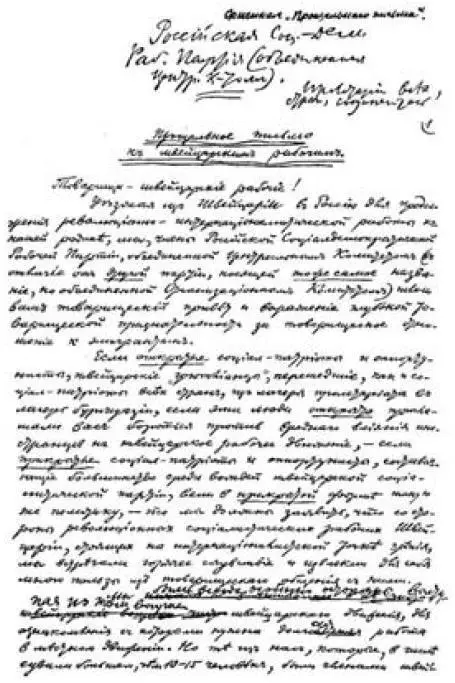 "Прощального письма".
Россійская Соц.-Дем.
Раб. Партія (объединенная
Центр. К-том).
Пролетаріи всѣх
стран, соединяйтесь
Прощальное письмо
къ швейцарским рабочим.
Товарищи, швейцарскіе рабочіе!
Уезжая из Швейцаріи в Россію для продол-
женія революціонно-интернаціоналистической работы на
нашей родинѣ, мы, члены Россійской Соціалдемократической
Рабочей Партіи, объединенной Центральным Комитетом (в
отличіе от другой партіи, носящей тоже самое назва-
ніе, но объединенной Организаціонным Комитетом) шлем
вам товарищескій привѣт и выраженіе глубокой то-
варищеской признательности за товарищеское отно-
шеніе к эмигрантам.
Если открытые соціал-патріоты и оппорту-
нисты, швейцарскіе "грютліанцы", перешедшіе, как и со-
ціал-патріоты всѣх стран, из лагеря пролетаріата в
лагерь буржуазіи, если эти люди открыто пригла-
шали вас бороться против вреднаго вліянія ино-
странцев на швейцарское рабочее движеніе, — если
прикрытые соціал-патріоты и оппортунисты, составля-
ющіе большинство среди вождей швейцарской соціа-
листической партіи, вели в прикрытой формѣ такую
же политику, — то мы должны заявить, что со сто-
роны революціонных соціалистических рабочих Швей-
царіи, стоящих на интернаціоналистской точкѣ зрѣнія,
мы встрѣчали горячее сочувствіе и извлекли для себя
много пользы из товарищескаго общенія с ними.
швейцарскаго движенія, для
ознакомленія с которыми нужна работа
в мѣстном движеніи. Но тѣ из нас, которые, в числѣ
едва ли большем, чѣм 10-15 человѣк, были членами швей-